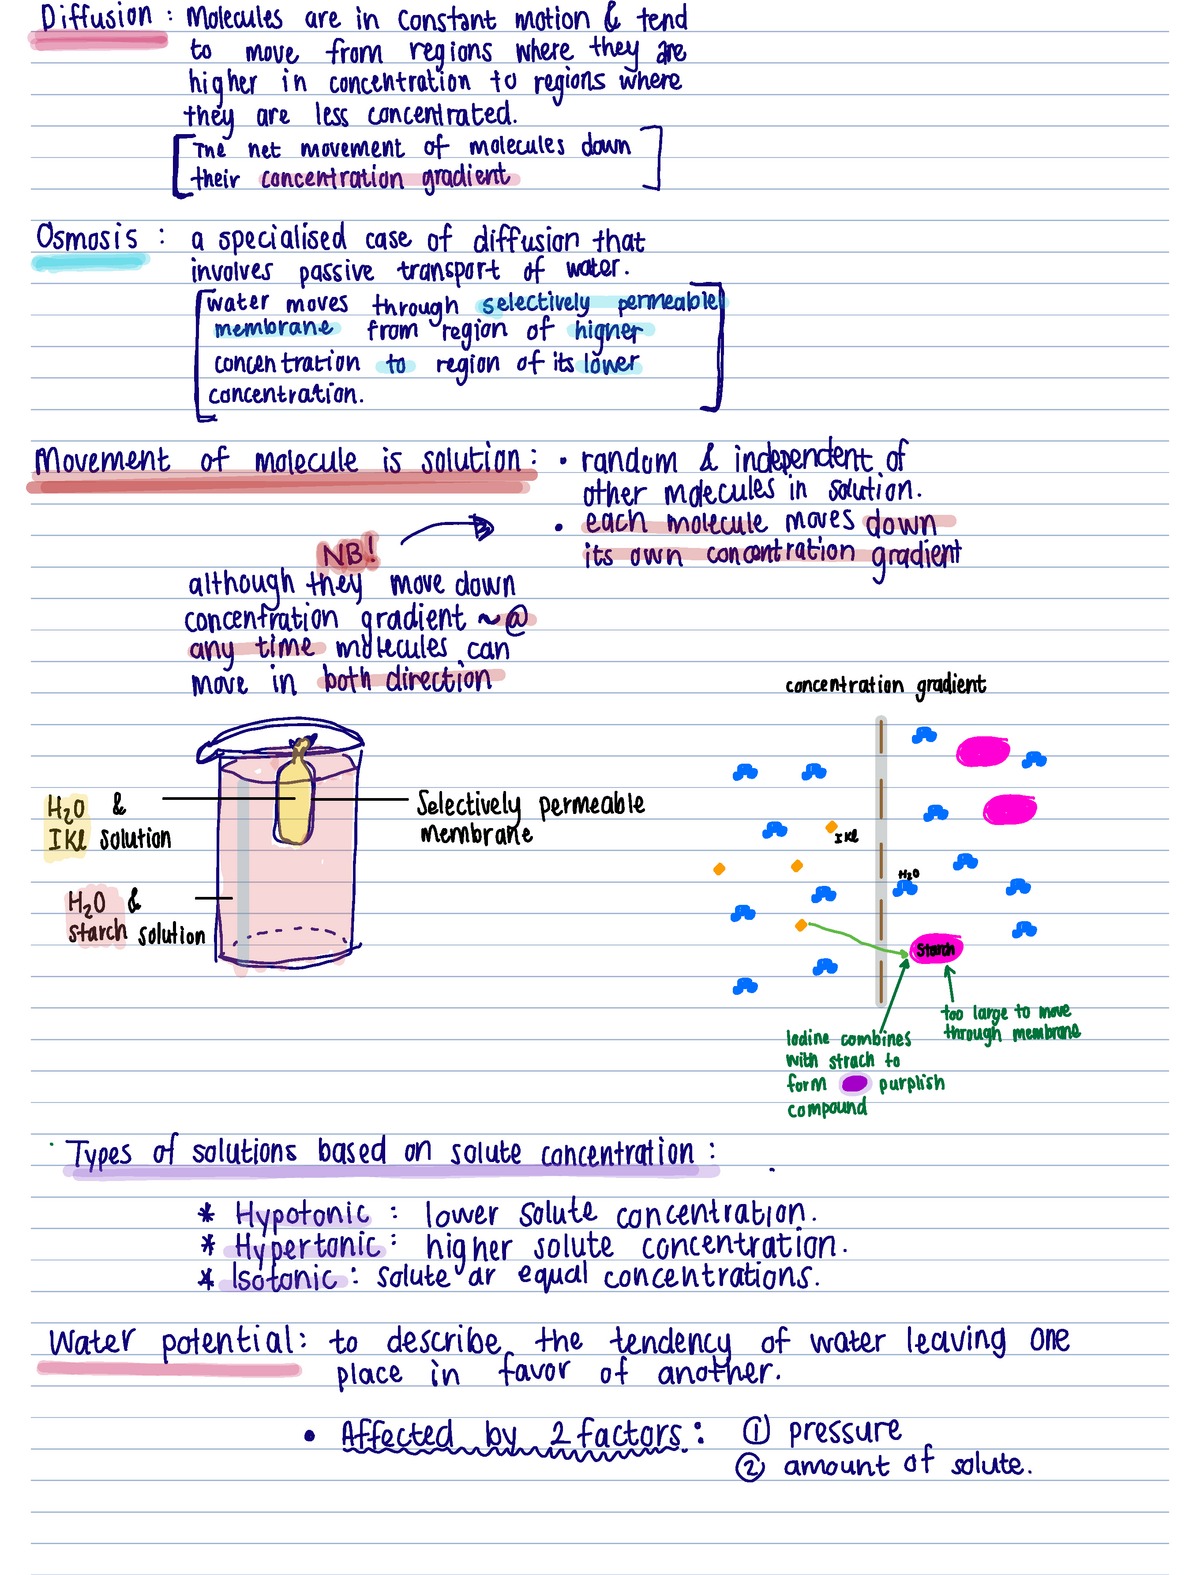 Diffusion : Molecules are in constant motion & tend
to move from regions where they are
higher in concentration to regions where
they are less concentrated.
[The net movement of molecules down
their concentration gradient]
Osmosis : a specialised case of diffusion that
involves passive transport of water.
[water moves through selectively permeable
membrane from region of higher
concentration to region of its lower
concentration.]
Movement of molecule is solution : • random & independent of
other molecules in solution.
• each molecule moves down
its own concentration gradient
NB!
although they move down
concentration gradient ~ @
any time molecules can
move in both direction
concentration gradient
H₂O &
IKl solution
Selectively permeable
membrane
H₂O &
starch solution
IKl
H₂O
Starch
too large to move
through membrane
Iodine combines
with strach to
form purplish
compound
Types of solutions based on solute concentration :
* Hypotonic : lower solute concentration.
* Hypertonic : higher solute concentration.
* Isotonic : solute ar equal concentrations.
Water potential : to describe the tendency of water leaving one
place in favor of another.
• Affected by 2 factors : ① pressure
② amount of solute.